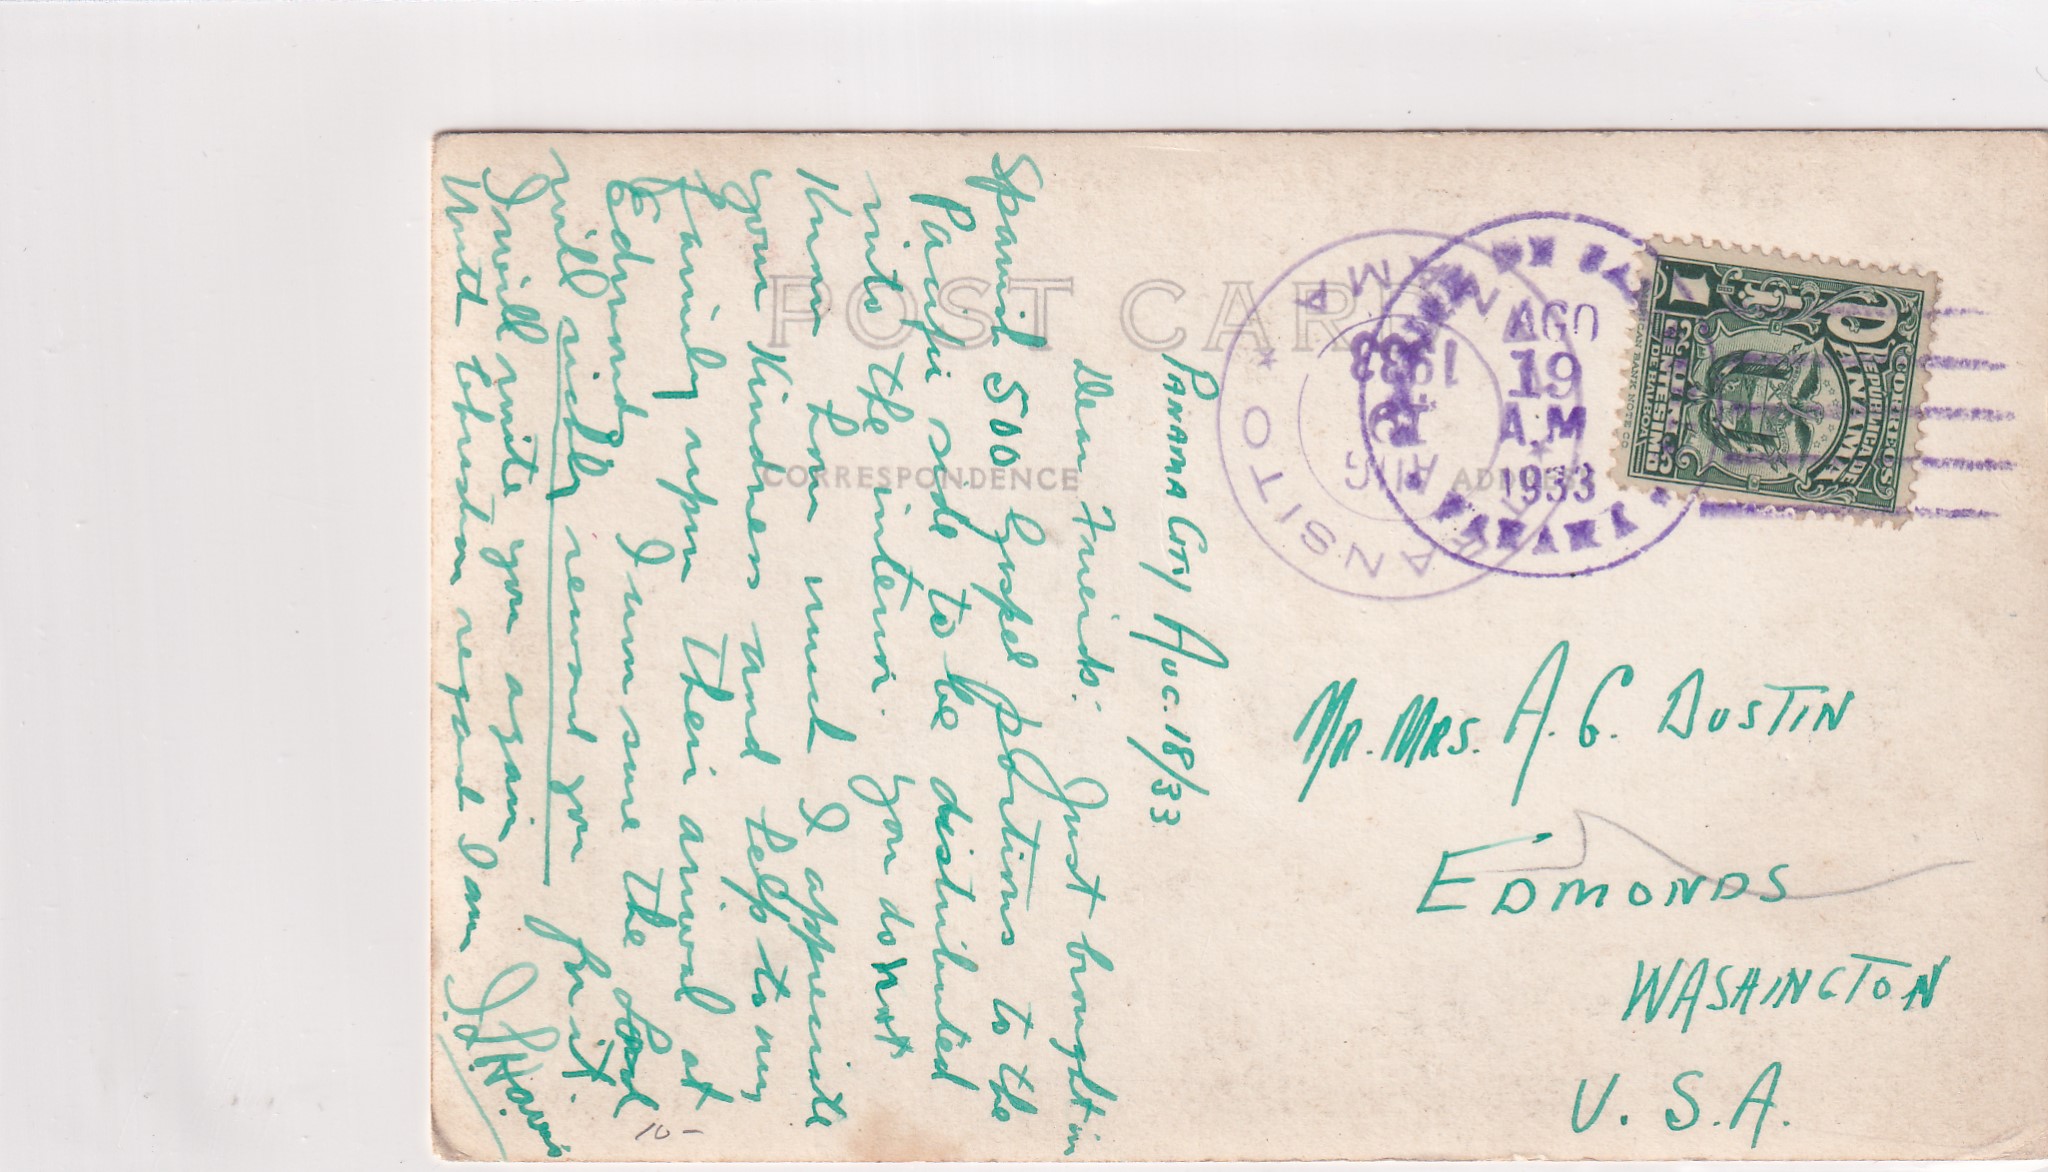 POST CARD
CORRESPONDENCE
ADDRESS
PANAMA CITY AUG. 18/33
Dear Friends: Just brought in
Spanish 500 Gospel portions to the
Pacific side to be distributed
into the interior. you do not
Know how much I appreciate
your Kindness and help to my
family upon their arival at
Edmonds I am sure the Lord
will richly reward you for it
I will write you again
With Christian regard I am
J. Harris
MR. MRS. A. G. DUSTIN
EDMONDS
WASHINGTON
U. S. A.
10-
AGO
19
A.M
1933
TRANSITO
PANAMA
AUG
19
1933
CORREOS
REPUBLICA DE
PANAMA
1
CENTESIMOS
DE BALBOA